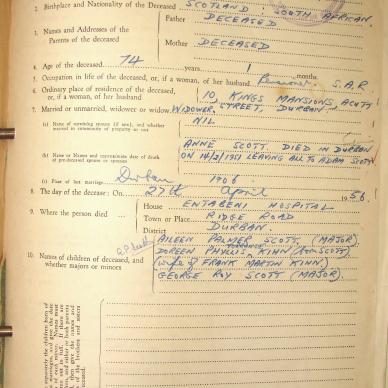 2. Birthplace and Nationality of the Deceased SCOTLAND: SOUTH AFRICAN.
Father DECEASED
3. Names and Addresses of the
Parents of the deceased
Mother DECEASED
4. Age of the deceased 74 years 1 months.
5. Occupation in life of the deceased, or, if a woman, of her husband Pensioner, S.A.R
6. Ordinary place of residence of the deceased,
or, if a woman, of her husband 10, KINGS MANSIONS, ACUTT
7. Married or unmarried, widower or widow WIDOWER. STREET, DURBAN.
(a) Name of surviving spouse (if any), and whether
married in community of property or not NIL
(b) Name or Names and approximate date of death
of pre-deceased spouse or spouses
ANNE SCOTT. DIED IN DURBAN
ON 14/2/1951 LEAVING ALL TO ADAM SCOTT
(c) Place of last marriage Durban 1906
8. The day of the decease: On 27th April 1956.
9. Where the person died
House ENTABENI HOSPITAL
Town or Place RIDGE ROAD
District DURBAN.
10. Names of children of deceased, and
whether majors or minors
AILEEN PALMER SCOTT (MAJOR)
DOREEN PHYLLIS KINN (born SCOTT)
(wife of FRANK MARTIN KINN)
GEORGE ROY SCOTT (MAJOR)